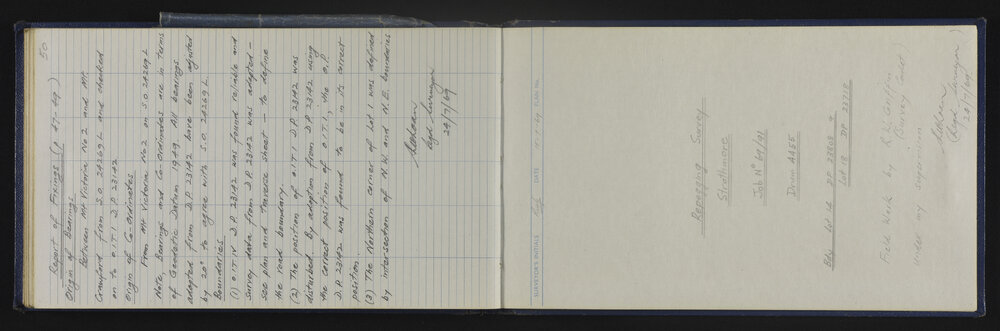 50
Report of Fixings (p 47-49)
Origin of Bearings
Between Mt Victoria No 2 and Mt
Crawford from S.O. 24269 L and checked
on to O.I.T I D.P. 23142
Origin of Co-Ordinates
From Mt Victoria No 2 on S.O. 24269 L
Note, Bearings and Co-Ordinates are in terms
of Geodetic Datum 1949. All bearings
adopted from D.P. 23142 have been adjusted
by 20" to agree with S.O. 24269 L.
Boundaries
(1) O.I.T IV D.P. 23142 was found reliable and
survey data from D.P. 23142 was adopted -
see plan and Traverse sheet - to define
the road boundary.
(2) The position of O.I.T I D.P. 23142 was
disturbed. By adoption from D.P. 23142 using
the correct position of O.I.T.I, the O.P.
D.P. 23142 was found to be in its correct
position.
(3) The Northern corner of Lot 1 was defined
by intersection of N.W. and N.E. boundaries
Regd Surveyor
24/7/69
SURVEYOR'S INITIALS
DATE
PLAN No.
Repegging Survey
Strathmore
Job No 69/91
Drwn A455
Bdy Lot 14 DP 23808 &
Lot 18 DP 23758
Field Work by
(Survey Cadet)
under my supervision
(Regd Surveyor)
24/7/69